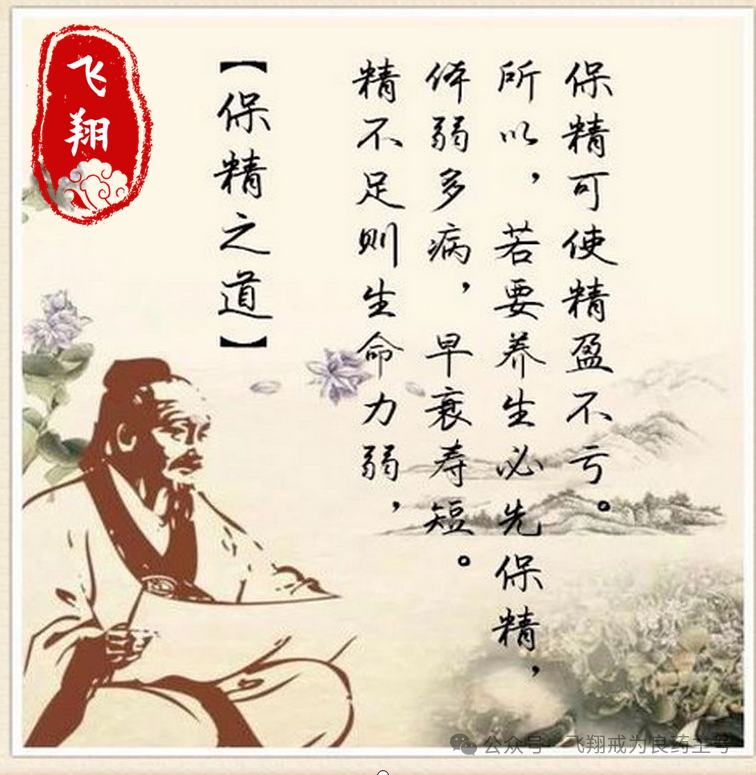 飞翔
【保精之道】
精不足则生命力弱，
体弱多病，早衰寿短。
所以，若要养生必先保精，
保精可使精盈不亏。
公众号·飞翔戒为良药